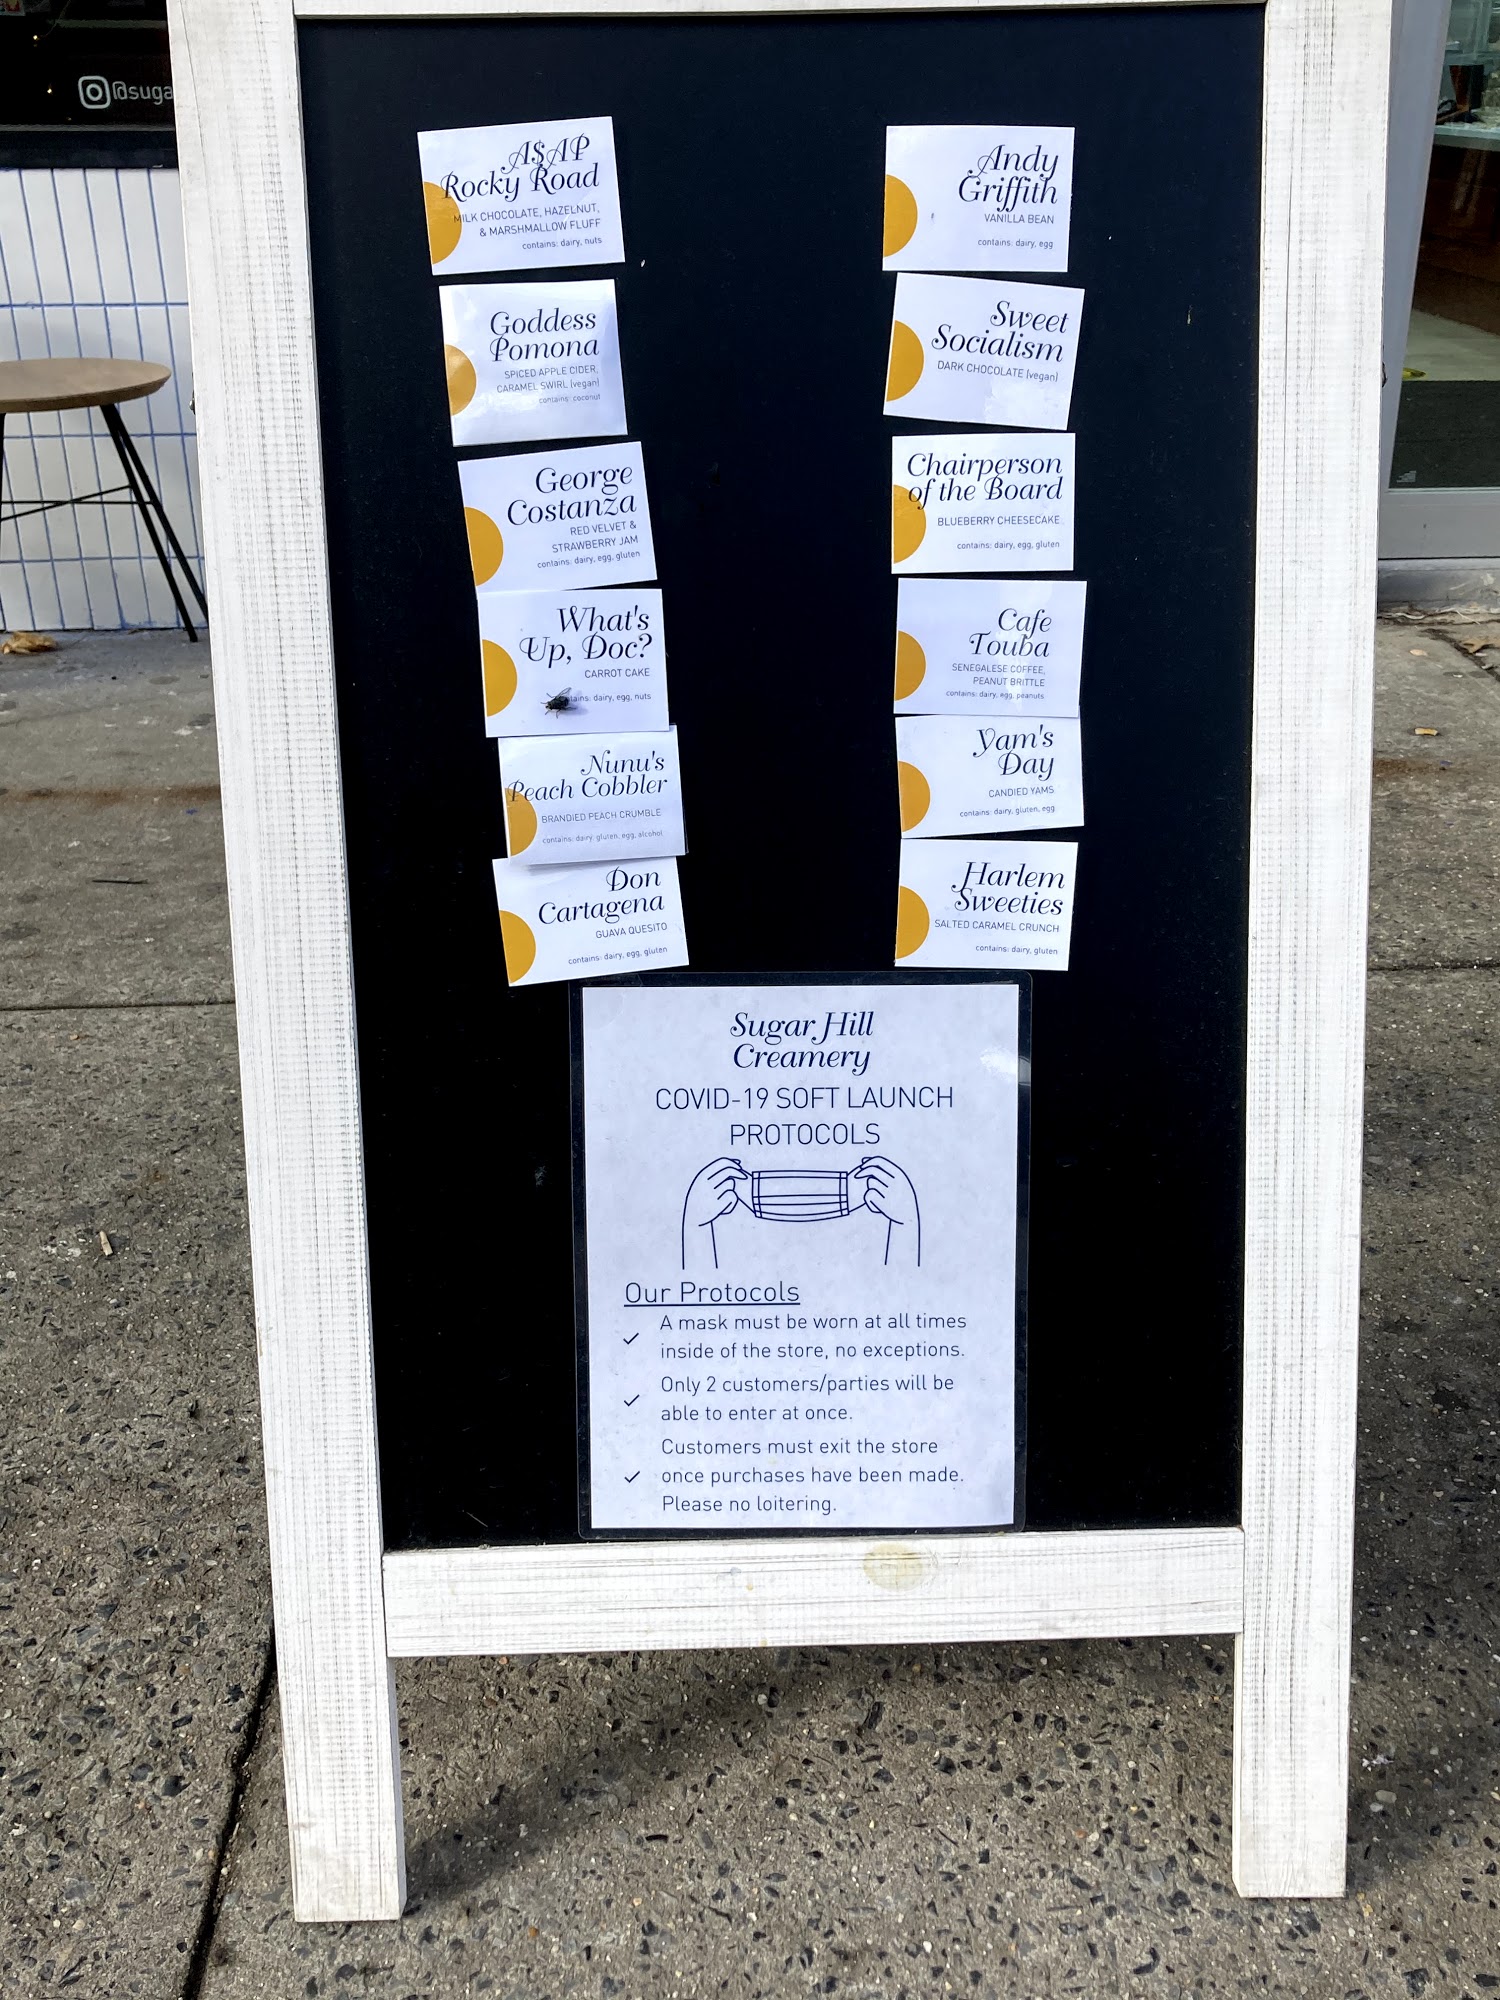 @suga
A$AP
Rocky Road
MILK CHOCOLATE, HAZELNUT,
& MARSHMALLOW FLUFF
contains: dairy, nuts
Goddess
Pomona
SPICED APPLE CIDER,
CARAMEL SWIRL (vegan)
contains: coconut
George
Costanza
RED VELVET &
STRAWBERRY JAM
contains: dairy, egg, gluten
What's
Up, Doc?
CARROT CAKE
tains: dairy, egg, nuts
Nunu's
Peach Cobbler
BRANDIED PEACH CRUMBLE
contains: dairy, gluten, egg, alcohol
Don
Cartagena
GUAVA QUESITO
contains: dairy, egg, gluten
Andy
Griffith
VANILLA BEAN
contains: dairy, egg
Sweet
Socialism
DARK CHOCOLATE (vegan)
Chairperson
of the Board
BLUEBERRY CHEESECAKE
contains: dairy, egg, gluten
Cafe
Touba
SENEGALESE COFFEE,
PEANUT BRITTLE
contains: dairy, egg, peanuts
Yam's
Day
CANDIED YAMS
contains: dairy, gluten, egg
Harlem
Sweeties
SALTED CARAMEL CRUNCH
contains: dairy, gluten
Sugar Hill
Creamery
COVID-19 SOFT LAUNCH
PROTOCOLS
Our Protocols
A mask must be worn at all times
inside of the store, no exceptions.
Only 2 customers/parties will be
able to enter at once.
Customers must exit the store
once purchases have been made.
Please no loitering.